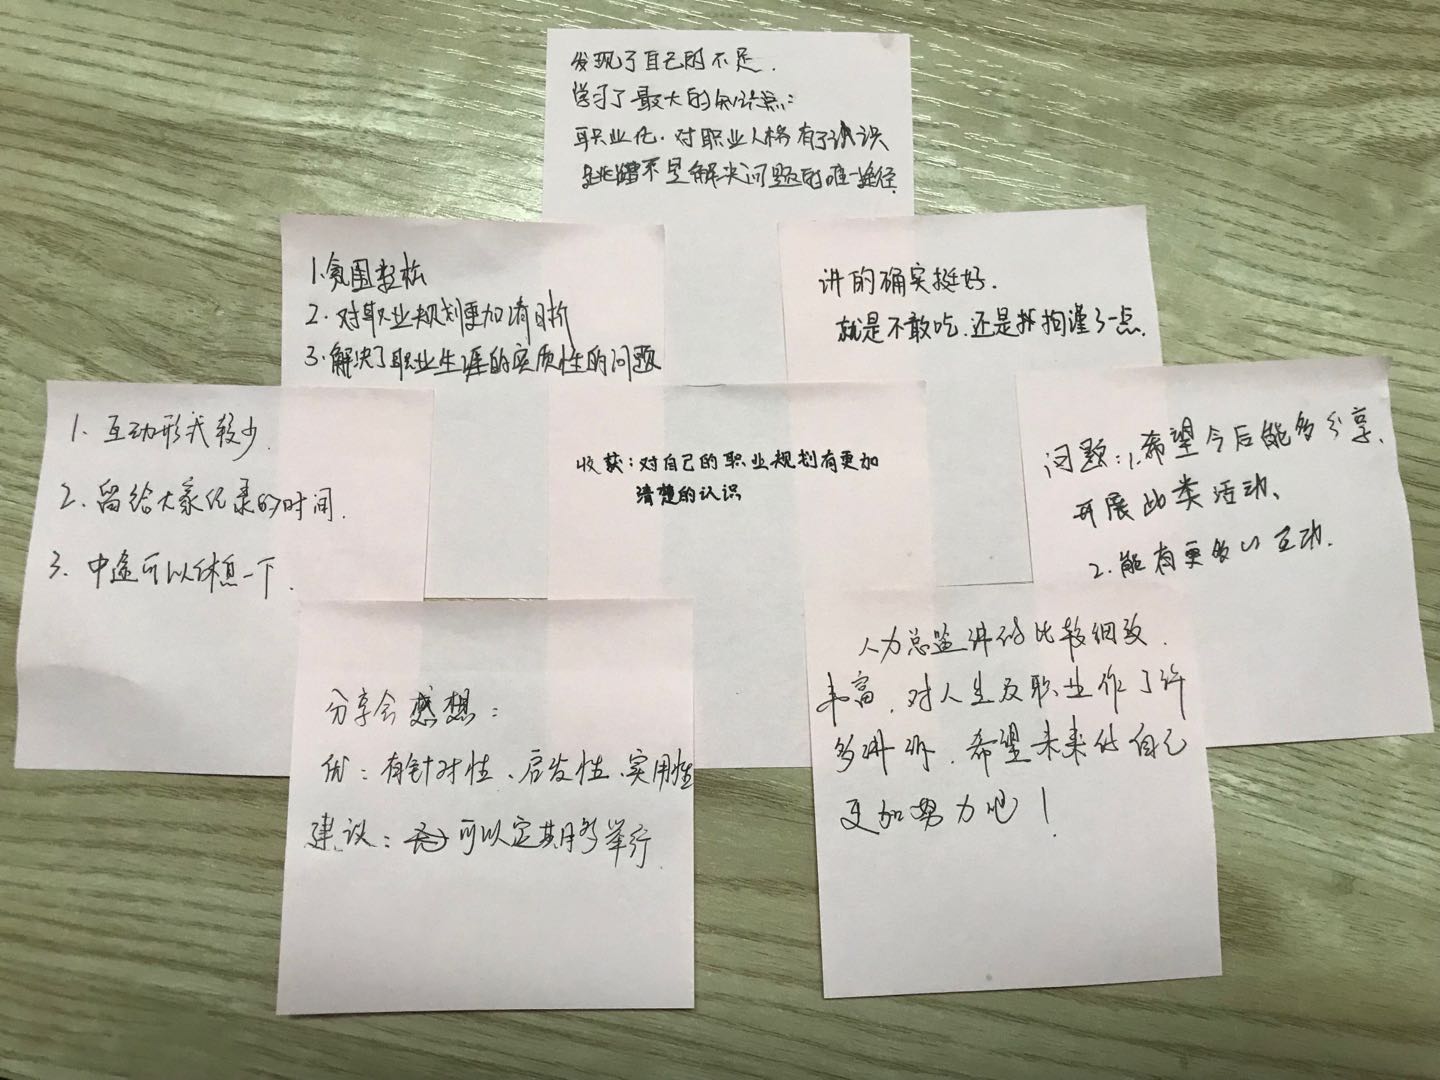 发现了自己的不足.
学习了最大的知识点:
职业化.对职业人格有了认识
跳槽不是解决问题的唯一途径.
1.氛围轻松
2.对职业规划更加清晰
3.解决了职业生涯的实质性的问题
讲的确实挺好.
就是不敢吃.还是拘谨了一点.
1.互动形式较少.
2.留给大家记录的时间.
3.中途可以休息一下.
收获:对自己的职业规划有更加
清楚的认识
问题:1.希望今后能多分享、
开展此类活动、
2.能有更多的互动.
分享会感想:
优:有针对性、启发性、实用性
建议:可以定期多举行.
人力总监讲的比较细致.
丰富.对人生及职业作了许
多讲解.希望未来的自己
更加努力吧!